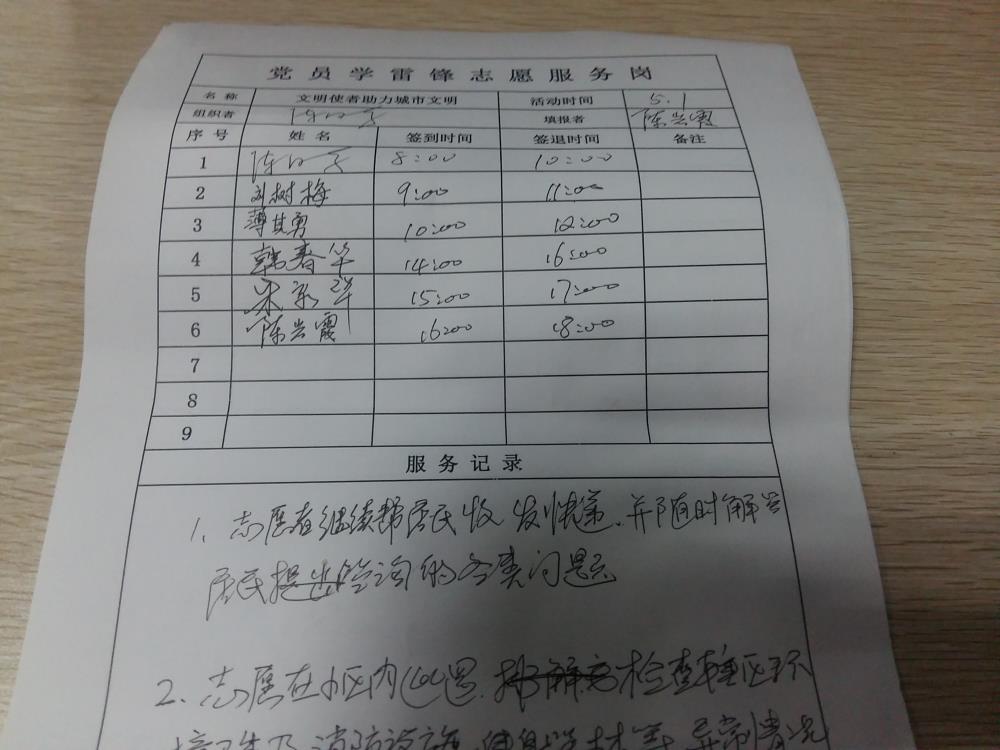 党员学雷锋志愿服务岗
名称 文明使者助力城市文明 活动时间 5.1
组织者 填报者 陈兰霞
序号 姓名 签到时间 签退时间 备注
1 陈 8:00 10:00
2 刘树梅 9:00 11:00
3 薄其勇 10:00 12:00
4 韩春华 14:00 16:00
5 15:00 17:00
6 陈兰霞 16:00 18:00
7
8
9
服务记录
1、志愿者继续帮居民收发快递、并随时解答
居民提出咨询的各类问题
2、志愿在小区内巡逻、检查小区环
境卫生及消防设施、健身器材等、异常情况